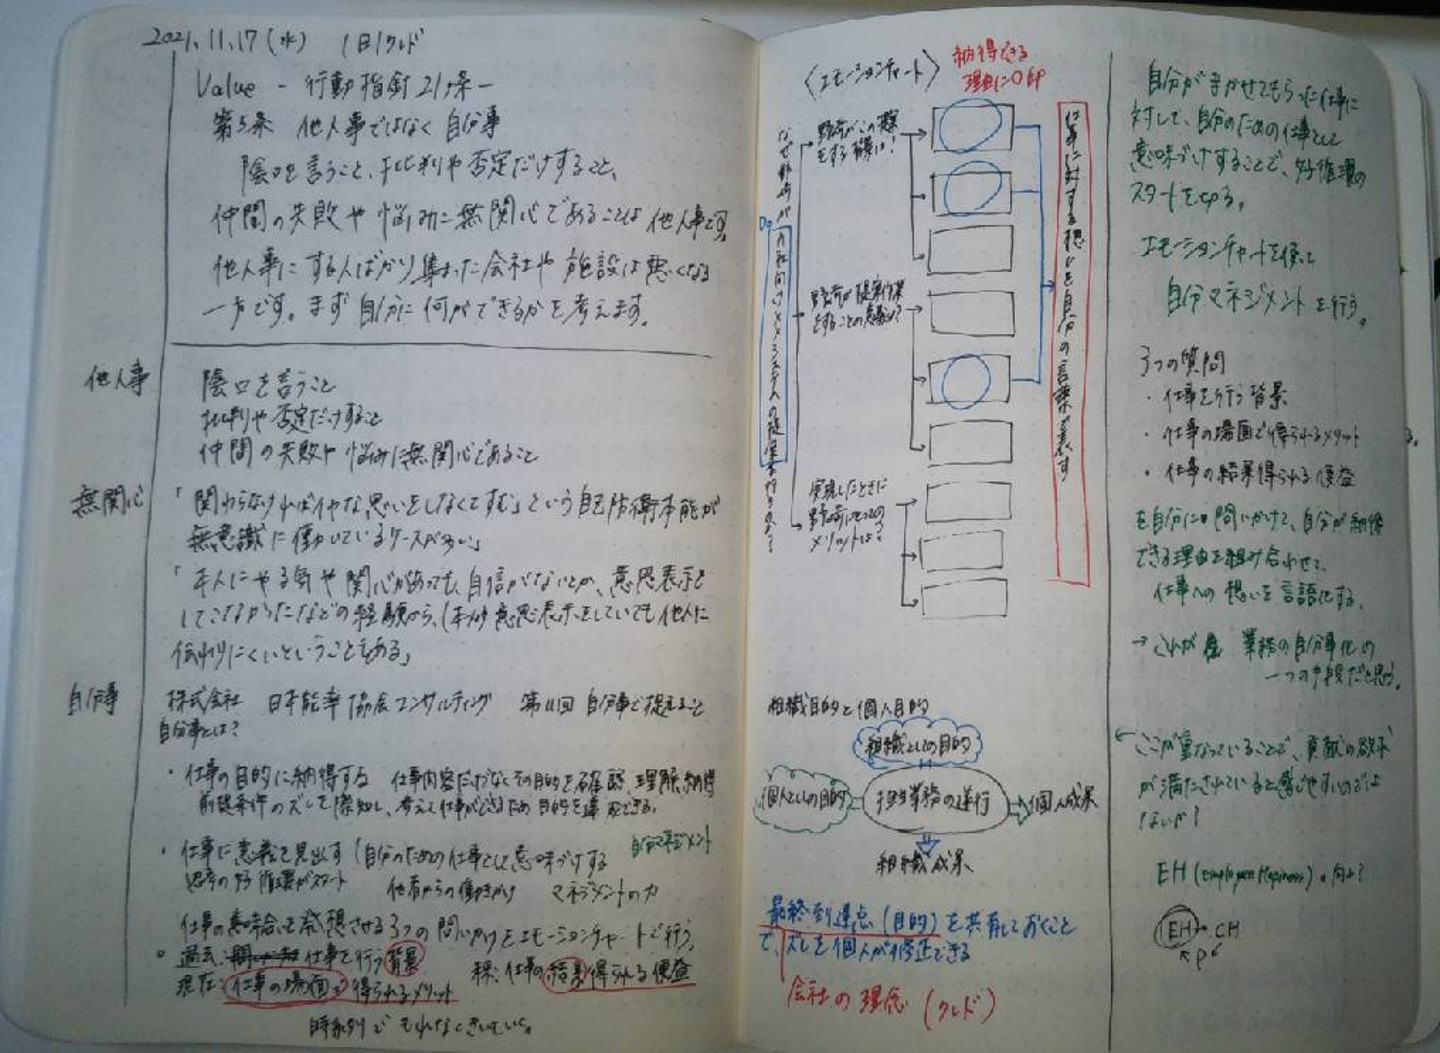 2021.11.17(水) 1日1クレド
Value - 行動指針21ヶ条-
第5条 他人事ではなく自分事
陰口を言うこと、批判や否定だけすること、
仲間の失敗や悩みに無関心であることは他人事です。
他人事にする人ばかり集まった会社や施設は悪くなる
一方です。まず自分に何ができるかを考えます。
他人事
陰口を言うこと
批判や否定だけすること
仲間の失敗や悩みに無関心であること
無関心
「関わらなければイヤな思いをしなくてすむ」という自己防衛本能が
無意識に働いているケースが多い」
「本人にやる気や関心があっても、自信がないとか、意思表示を
してこなかったなどの経験から、(本人が意思表示をしていても他人に
伝わりにくいということもある」
自分事
株式会社 日本能率協会コンサルティング 第11回 自分事で捉えること
自分事とは?
・仕事の目的に納得する 仕事内容だけでなくその目的を確認、理解、納得
前提条件のズレを察知し、考えて仕事ができるため目的を達成できる。
・仕事に意義を見出す (自分のための仕事として意味づけする
自分マネジメント
思考の好循環がスタート 他者からの働きかけ マネジメントの力
仕事の意味合いを発想させる3つの問いかけをエモーションチャートで行う。
過去: 仕事を行う背景
現在: 仕事の場面で得られるメリット
未来: 仕事の結果得られる便益
時系列でもれなくきいていく。
〈エモーションチャート〉
納得できる
理由に○印
Do
なぜ野崎が 提案を行うのか?
野崎がこの提案
をする背景は?
野崎が提案作業
をすることの意義は?
実現したときに
野崎にとっての
メリットは?
仕事に対する想いを自分の言葉で表す
組織目的と個人目的
組織としての目的
個人としての目的
担当業務の遂行
個人成果
組織成果
最終到達点(目的)を共有しておくこと
で、ズレを個人が修正できる
会社の理念(クレド)
自分がまかせてもらった仕事に
対して、自分のための仕事として
意味づけすることで、好循環の
スタートを切る。
エモーションチャートを使って
自分マネジメントを行う。
3つの質問
・仕事を行う背景
・仕事の場面で得られるメリット
・仕事の結果得られる便益
を自分に問いかけて、自分が納得
できる理由を組み合わせて、
仕事への想いを言語化する。
→これが 業務の自分事化の
一つの手段だと思う。
←ここが重なっていることで、貢献の欲求
が満たされていると感じやすいのでは
ないか?
EH (employee Happiness)の向上?
EH CH
P